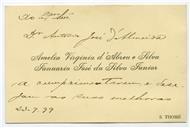 Ao
Dr. Antonio José d'Almeida
Amelia Virginia d'Abreu e Silva
Januario José da Silva Junior
a cumprimentarem e dese
jam as suas melhoras
23-7-99
S. THOMÉ